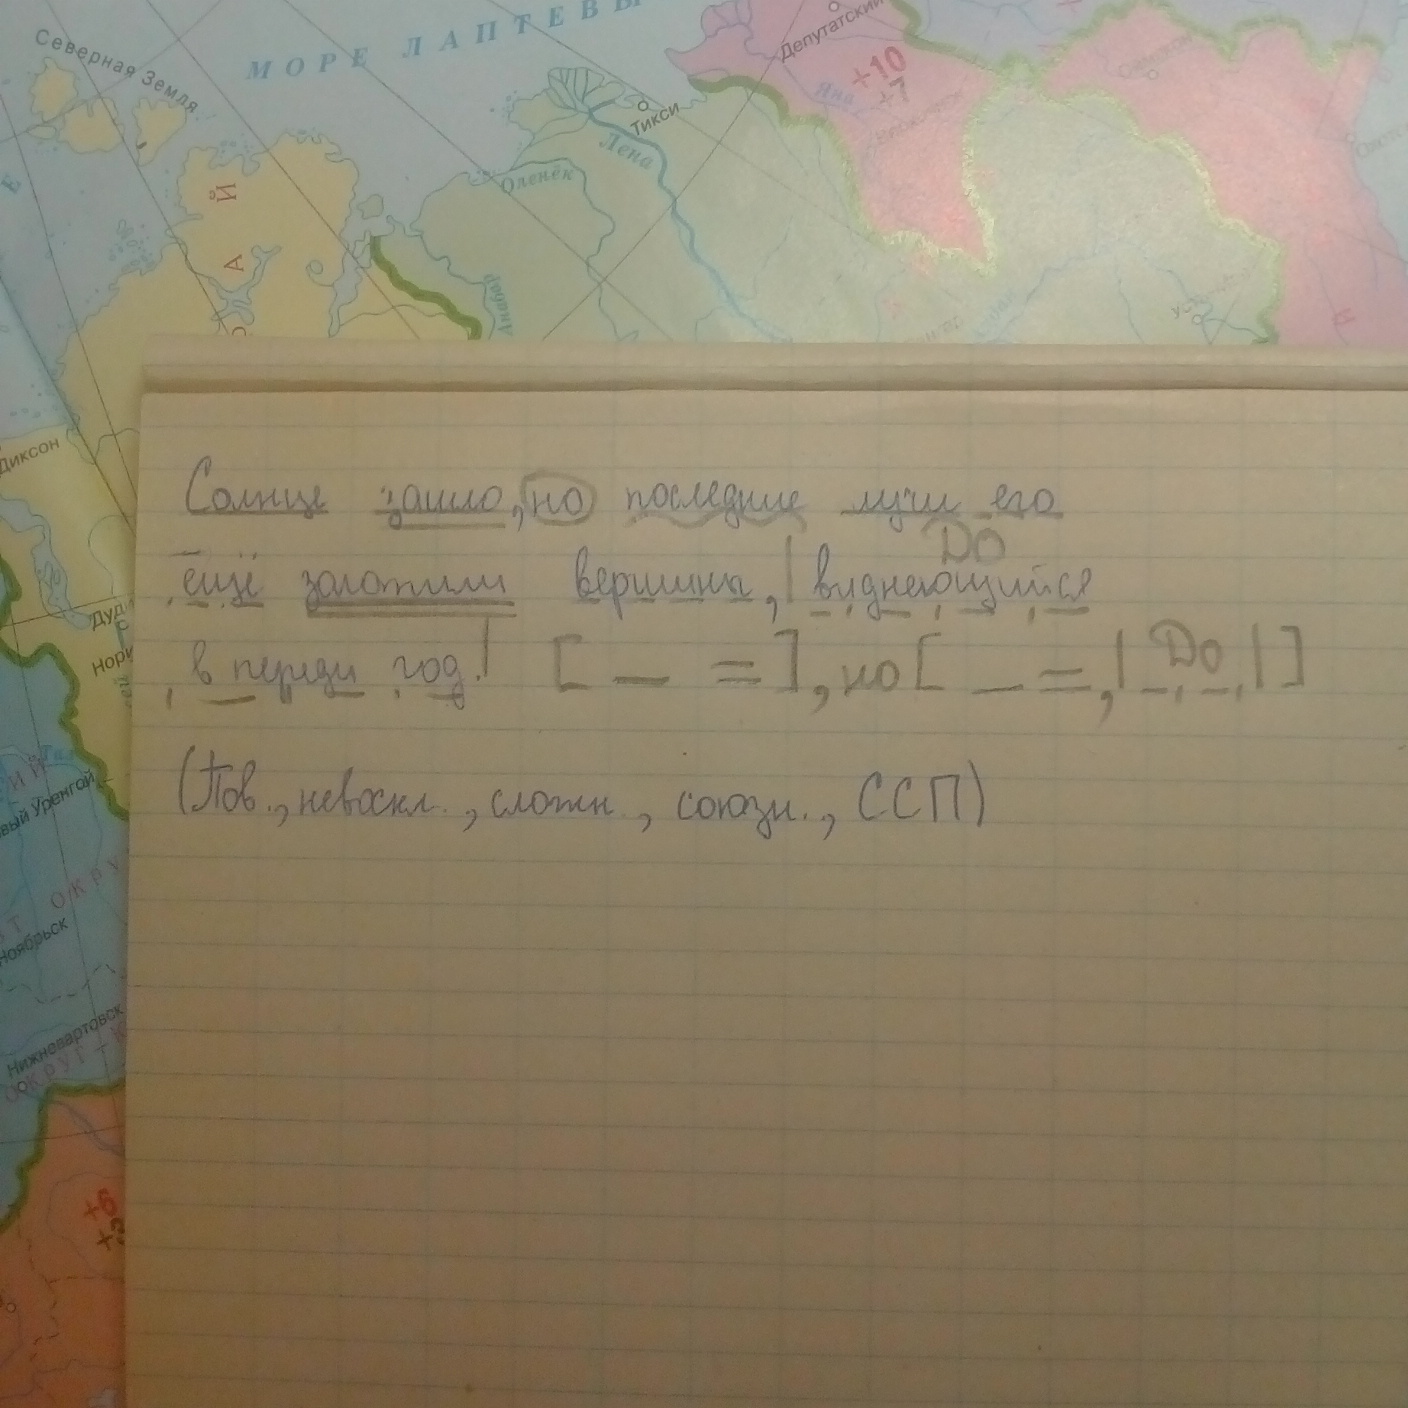 Северная Земля
МОРЕ ЛАПТЕВЫ
Депутатский
+10
+7
Яна
Тикси
Лена
Оленёк
Й
А
Диксон
Солнце зашло, но последние лучи его
ДО
ещё золотили вершины, | виднеющийся
в переди год.| [ — = ], но [ — =, | ДО | ]
(Пов., невоскл., сложн., союзн., ССП)
вый Уренгой
ОКРУ
Ноябрьск
Нижневартовск
ОКРУГ
+6
+3